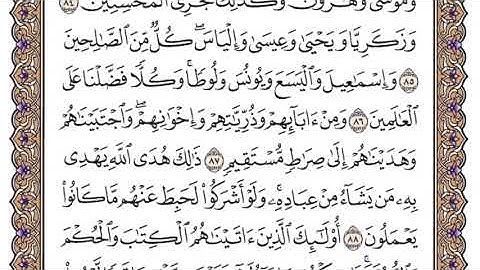 وَمُوسَىٰ وَهَٰرُونَ ۚ وَكَذَٰلِكَ نَجْزِي ٱلْمُحْسِنِينَ ٨٤
وَزَكَرِيَّا وَيَحْيَىٰ وَعِيسَىٰ وَإِلْيَاسَ ۖ كُلٌّ مِّنَ ٱلصَّٰلِحِينَ
٨٥ وَإِسْمَٰعِيلَ وَٱلْيَسَعَ وَيُونُسَ وَلُوطًا ۚ وَكُلًّا فَضَّلْنَا عَلَى
ٱلْعَٰلَمِينَ ٨٦ وَمِنْ ءَابَآئِهِمْ وَذُرِّيَّٰتِهِمْ وَإِخْوَٰنِهِمْ ۖ وَٱجْتَبَيْنَٰهُمْ
وَهَدَيْنَٰهُمْ إِلَىٰ صِرَٰطٍ مُّسْتَقِيمٍ ٨٧ ذَٰلِكَ هُدَى ٱللَّهِ يَهْدِي
بِهِۦ مَن يَشَآءُ مِنْ عِبَادِهِۦ ۚ وَلَوْ أَشْرَكُوا۟ لَحَبِطَ عَنْهُم مَّا كَانُوا۟
يَعْمَلُونَ ٨٨ أُو۟لَٰٓئِكَ ٱلَّذِينَ ءَاتَيْنَٰهُمُ ٱلْكِتَٰبَ وَٱلْحُكْمَ